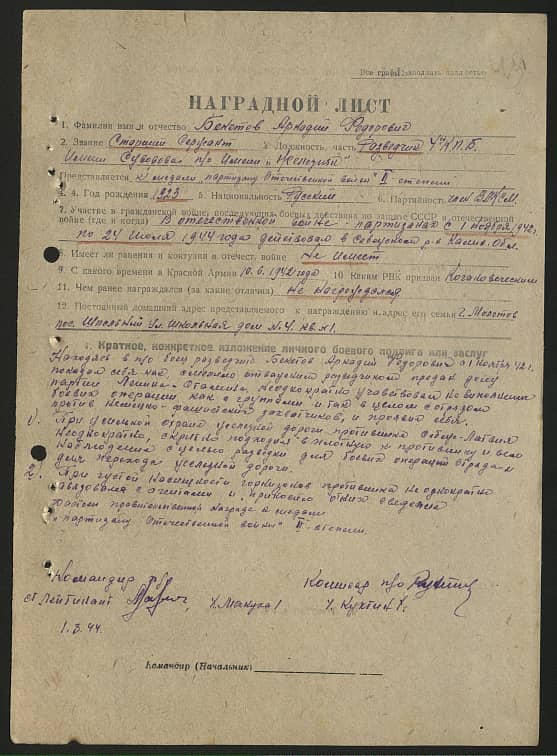 Все графы заполнять полностью
НАГРАДНОЙ ЛИСТ
1. Фамилия имя и отчество Бекетов Аркадий Федорович
2. Звание Старший Сержант 3. Должность, часть Разведчик 4" К.П.Б.
Имени Суворова п/о Имени
Представляется к медали партизану Отечественной войны" II степени
4. Год рождения 1923 5. Национальность Русский 6. Партийность член ВЛКСМ
7. Участие в гражданской войне, последующих боевых действиях по защите СССР и отечественной
войне (где и когда) В отечественной войне - партизанах с 1 ноября 1942г.
по 24 июля 1944 года действовал в р-е Калин. Обл.
8. Имеет ли ранения и контузии в отечест. войне Не имеет
9. С какого времени в Красной Армии 10.6.1942 года 10. Каким РВК призван Кагановическим
11. Чем ранее награждался (за какие отличия) Не награждался
12. Постоянный домашний адрес представляемого к награждению и адрес его семьи г. Молотов
пос. Школьный ул. Школьная дом № 4. кв. № 1.
1. Краткое, конкретное изложение личного боевого подвига или заслуг
Находясь в п/о боец разведчик Бекетов Аркадий Федорович с 1 Ноября 42 г.
показал себя как, смелого отважного разведчиком предан делу
партии Ленина-Сталина, неоднократно участвовал по выполнении
боевых операций как с группами и так в целом с отрядом
против Немецко-фашистских захватчиков, и проявил себя.
1). При усиленой охране железной дороги противника
Неоднократно, скрытно подходил вплотную к противнику и вел
Наблюдения с целью разведки для боевых операций отрядам
для перехода железной дороги.
2. При густой насыщености горнизонов противника неоднократно
связывался с агентами и приносил от них сведения
Достоин правительственной награде к медали
"партизану Отечественной войны" II степени.
Командир п/о Комиссар п/о
ст. Лейтинант
1.8.44.
Командир (Начальник)